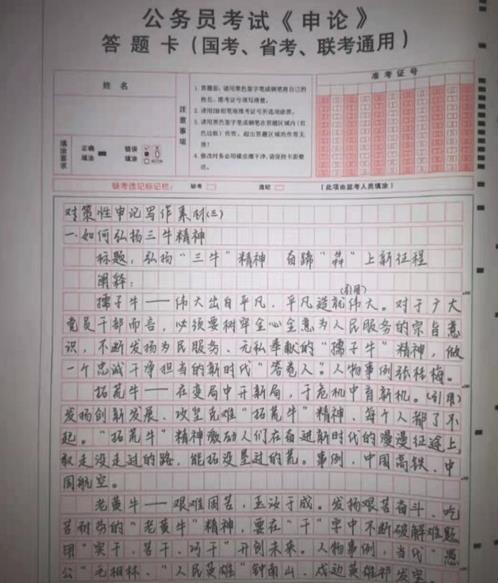 公务员考试《申论》
答题卡（国考、省考、联考通用）
姓名
注意事项
准考证号
填涂要求
正确填涂
错误填涂
缺考违记标记栏：
缺考
违纪
（此项由监考人员填涂）
对策性申论写作素材(三)
一.如何弘扬三牛精神
标题：弘扬“三牛”精神 奋蹄“犇”上新征程
阐释：
(引用)
孺子牛——伟大出自平凡，平凡造就伟大。对于广大
党员干部而言，必须要树牢全心全意为人民服务的宗旨意
识，不断发扬为民服务、无私奉献的“孺子牛”精神，做
一个忠诚干净担当的新时代“答卷人”。人物事例张桂梅。
拓荒牛——在变局中开新局，于危机中育新机。(引用)
发扬创新发展、攻坚克难“拓荒牛”精神，每个人都了不
起。“拓荒牛”精神激励人们在奋进新时代的漫漫征途上，
敢走没走过的路，能拓没垦过的荒。事例，中国高铁、中
国航空。
老黄牛——艰难困苦，玉汝于成。发扬艰苦奋斗、吃
苦耐劳的“老黄牛”精神，要在“干”字中不断破解难题
用“实干、苦干、巧干”开创未来。人物事例，当代“愚
公”毛相林、“人民英雄”钟南山、戍边英雄